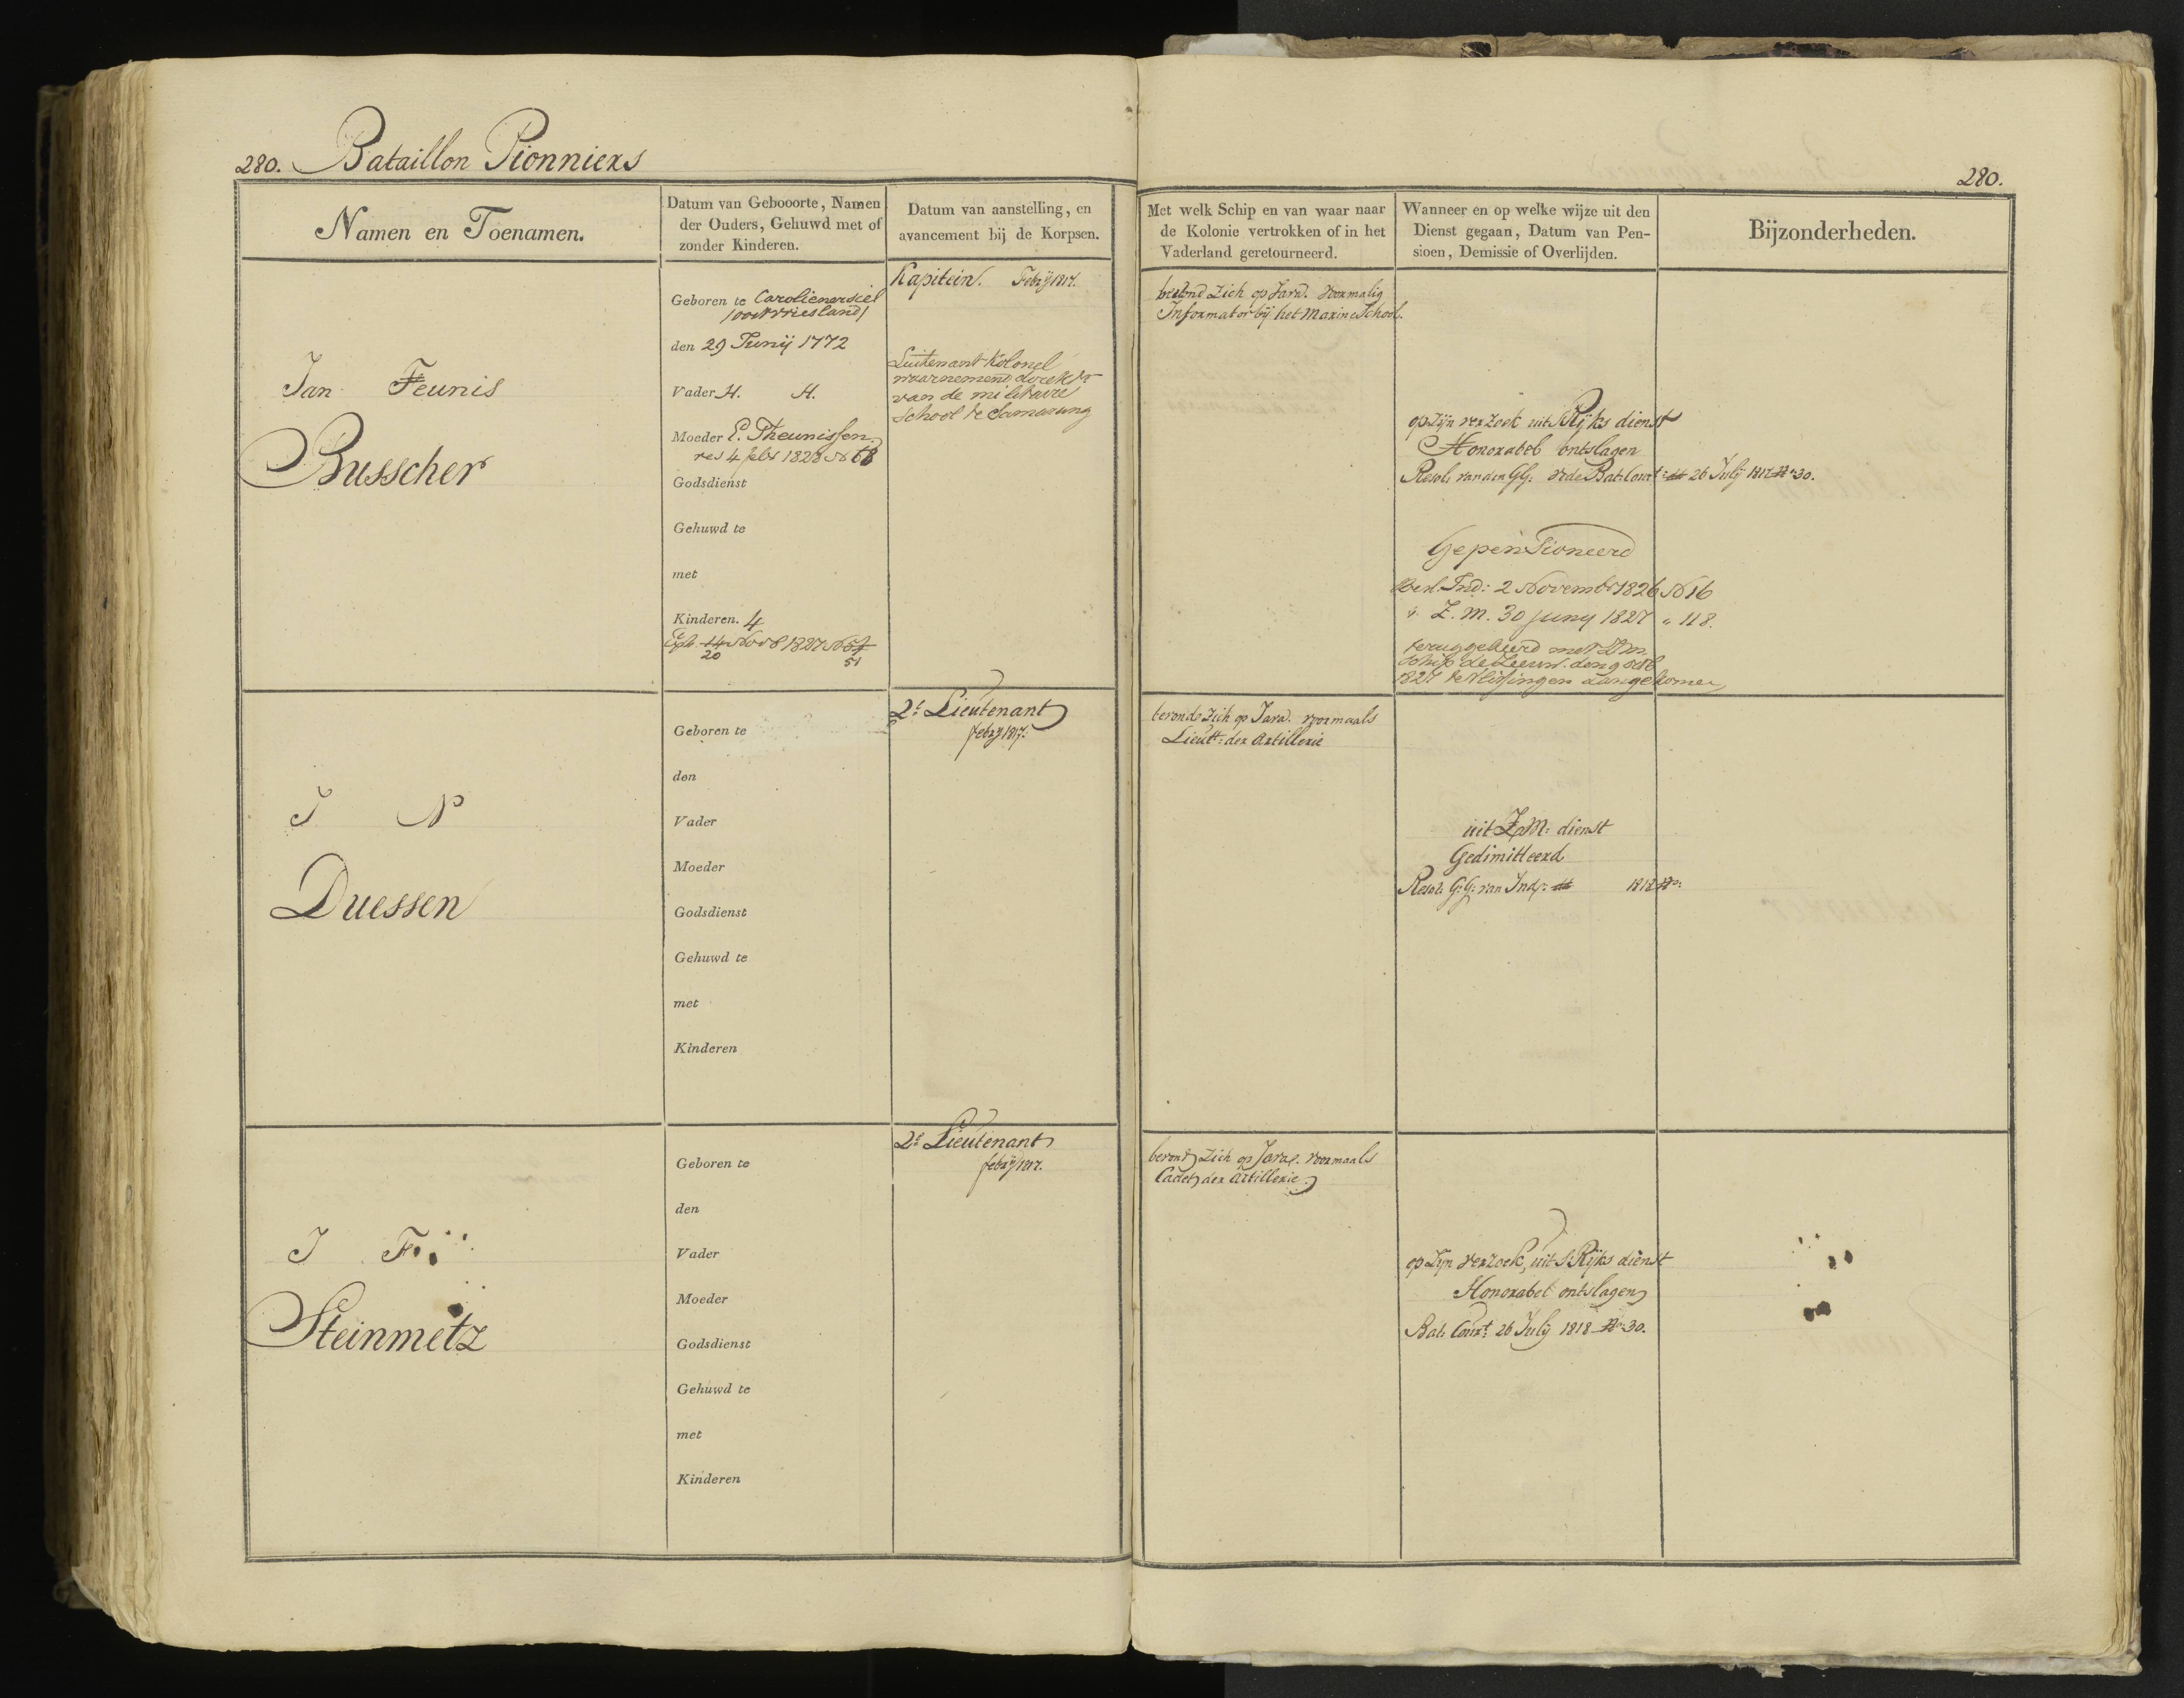 280. Bataillon Pionniers
280.
Namen en Toenamen.
Datum van Gebooorte, Namen
der Ouders, Gehuwd met of
zonder Kinderen.
Datum van aanstelling, en
avancement bij de Korpsen.
Met welk Schip en van waar naar
de Kolonie vertrokken of in het
Vaderland geretourneerd.
Wanneer en op welke wijze uit den
Dienst gegaan, Datum van Pen-
sioen, Demissie of Overlijden.
Bijzonderheden.
Jan Feunis
Busscher
Geboren te Carolienersiel
/oostvriesland/
den 29 Junij 1772
Vader H. H.
Moeder E. Theunissen
res 4 febr 1828 N 68
Godsdienst
Gehuwd te
met
Kinderen. 4
14 Novb 1827 N 51
20 51
Kapitein. Febrij 1817.
Luitenant Kolonel
waarnemend direktr
van de militaire
School te Samarang
bevond zich op Java. voormalig
Informator bij het Marine School.
op Zijn verzoek uit S Rijks dienst
Honorabel ontslagen
Resol: van den GG: Vide Bat: Cour.t dd 26 Julij 1817 No 30.
Gepensioneerd
Besl. Ind: 2 Novembr 1826 N 16
" Z. M. 30 juny 1827 " 118.
teruggekeerd met Z M
Schip de Leeuw. den 9 octb
1827 te Vlissingen aangekomen
J N
Duessen
Geboren te
den
Vader
Moeder
Godsdienst
Gehuwd te
met
Kinderen
2e Lieutenant
febrij 1817.
bevondt zich op Java. voormaals
Lieutt: der Artillerie
uit Z M: dienst
Gedimitteerd
Resol: G: G: van Ind: dd 1818 No:
J F
Steinmetz
Geboren te
den
Vader
Moeder
Godsdienst
Gehuwd te
met
Kinderen
2e Lieutenant
febrij 1817.
bevond zich op Java. voormaals
Cadet der Artillerie.
op Zijn verzoek, uit S Rijks dienst
Honorabel ontslagen
Bat: Cour.t 26 Julij 1818 No 30.